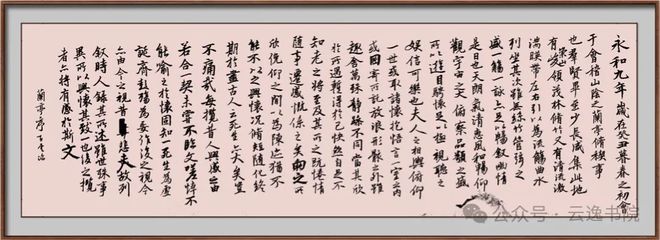 永和九年歲在癸丑暮春之初會
于會稽山陰之蘭亭脩禊事
也群賢畢至少長咸集此地
有崇山峻領茂林脩竹又有清流激
湍暎帶左右引以為流觴曲水
列坐其次雖無絲竹管弦之
盛一觴一詠亦足以暢叙幽情
是日也天朗氣清惠風和暢仰
觀宇宙之大俯察品類之盛
所以遊目騁懷足以極視聽之
娛信可樂也夫人之相與俯仰
一世或取諸懷抱悟言一室之內
或因寄所託放浪形骸之外雖
趣舍萬殊靜躁不同當其欣
於所遇暫得於己快然自足不
知老之將至及其所之既惓情
隨事遷感慨係之矣向之所
欣俛仰之間以為陳迹猶不
能不以之興懷況脩短隨化終
期於盡古人云死生亦大矣豈
不痛哉每攬昔人興感之由
若合一契未嘗不臨文嗟悼不
能喻之於懷固知一死生為虛
誕齊彭殤為妄作後之視今
亦由今之視昔悲夫故列
叙時人錄其所述雖世殊事
異所以興懷其致一也後之攬
者亦將有感於斯文
蘭亭序
公众号·云逸书院